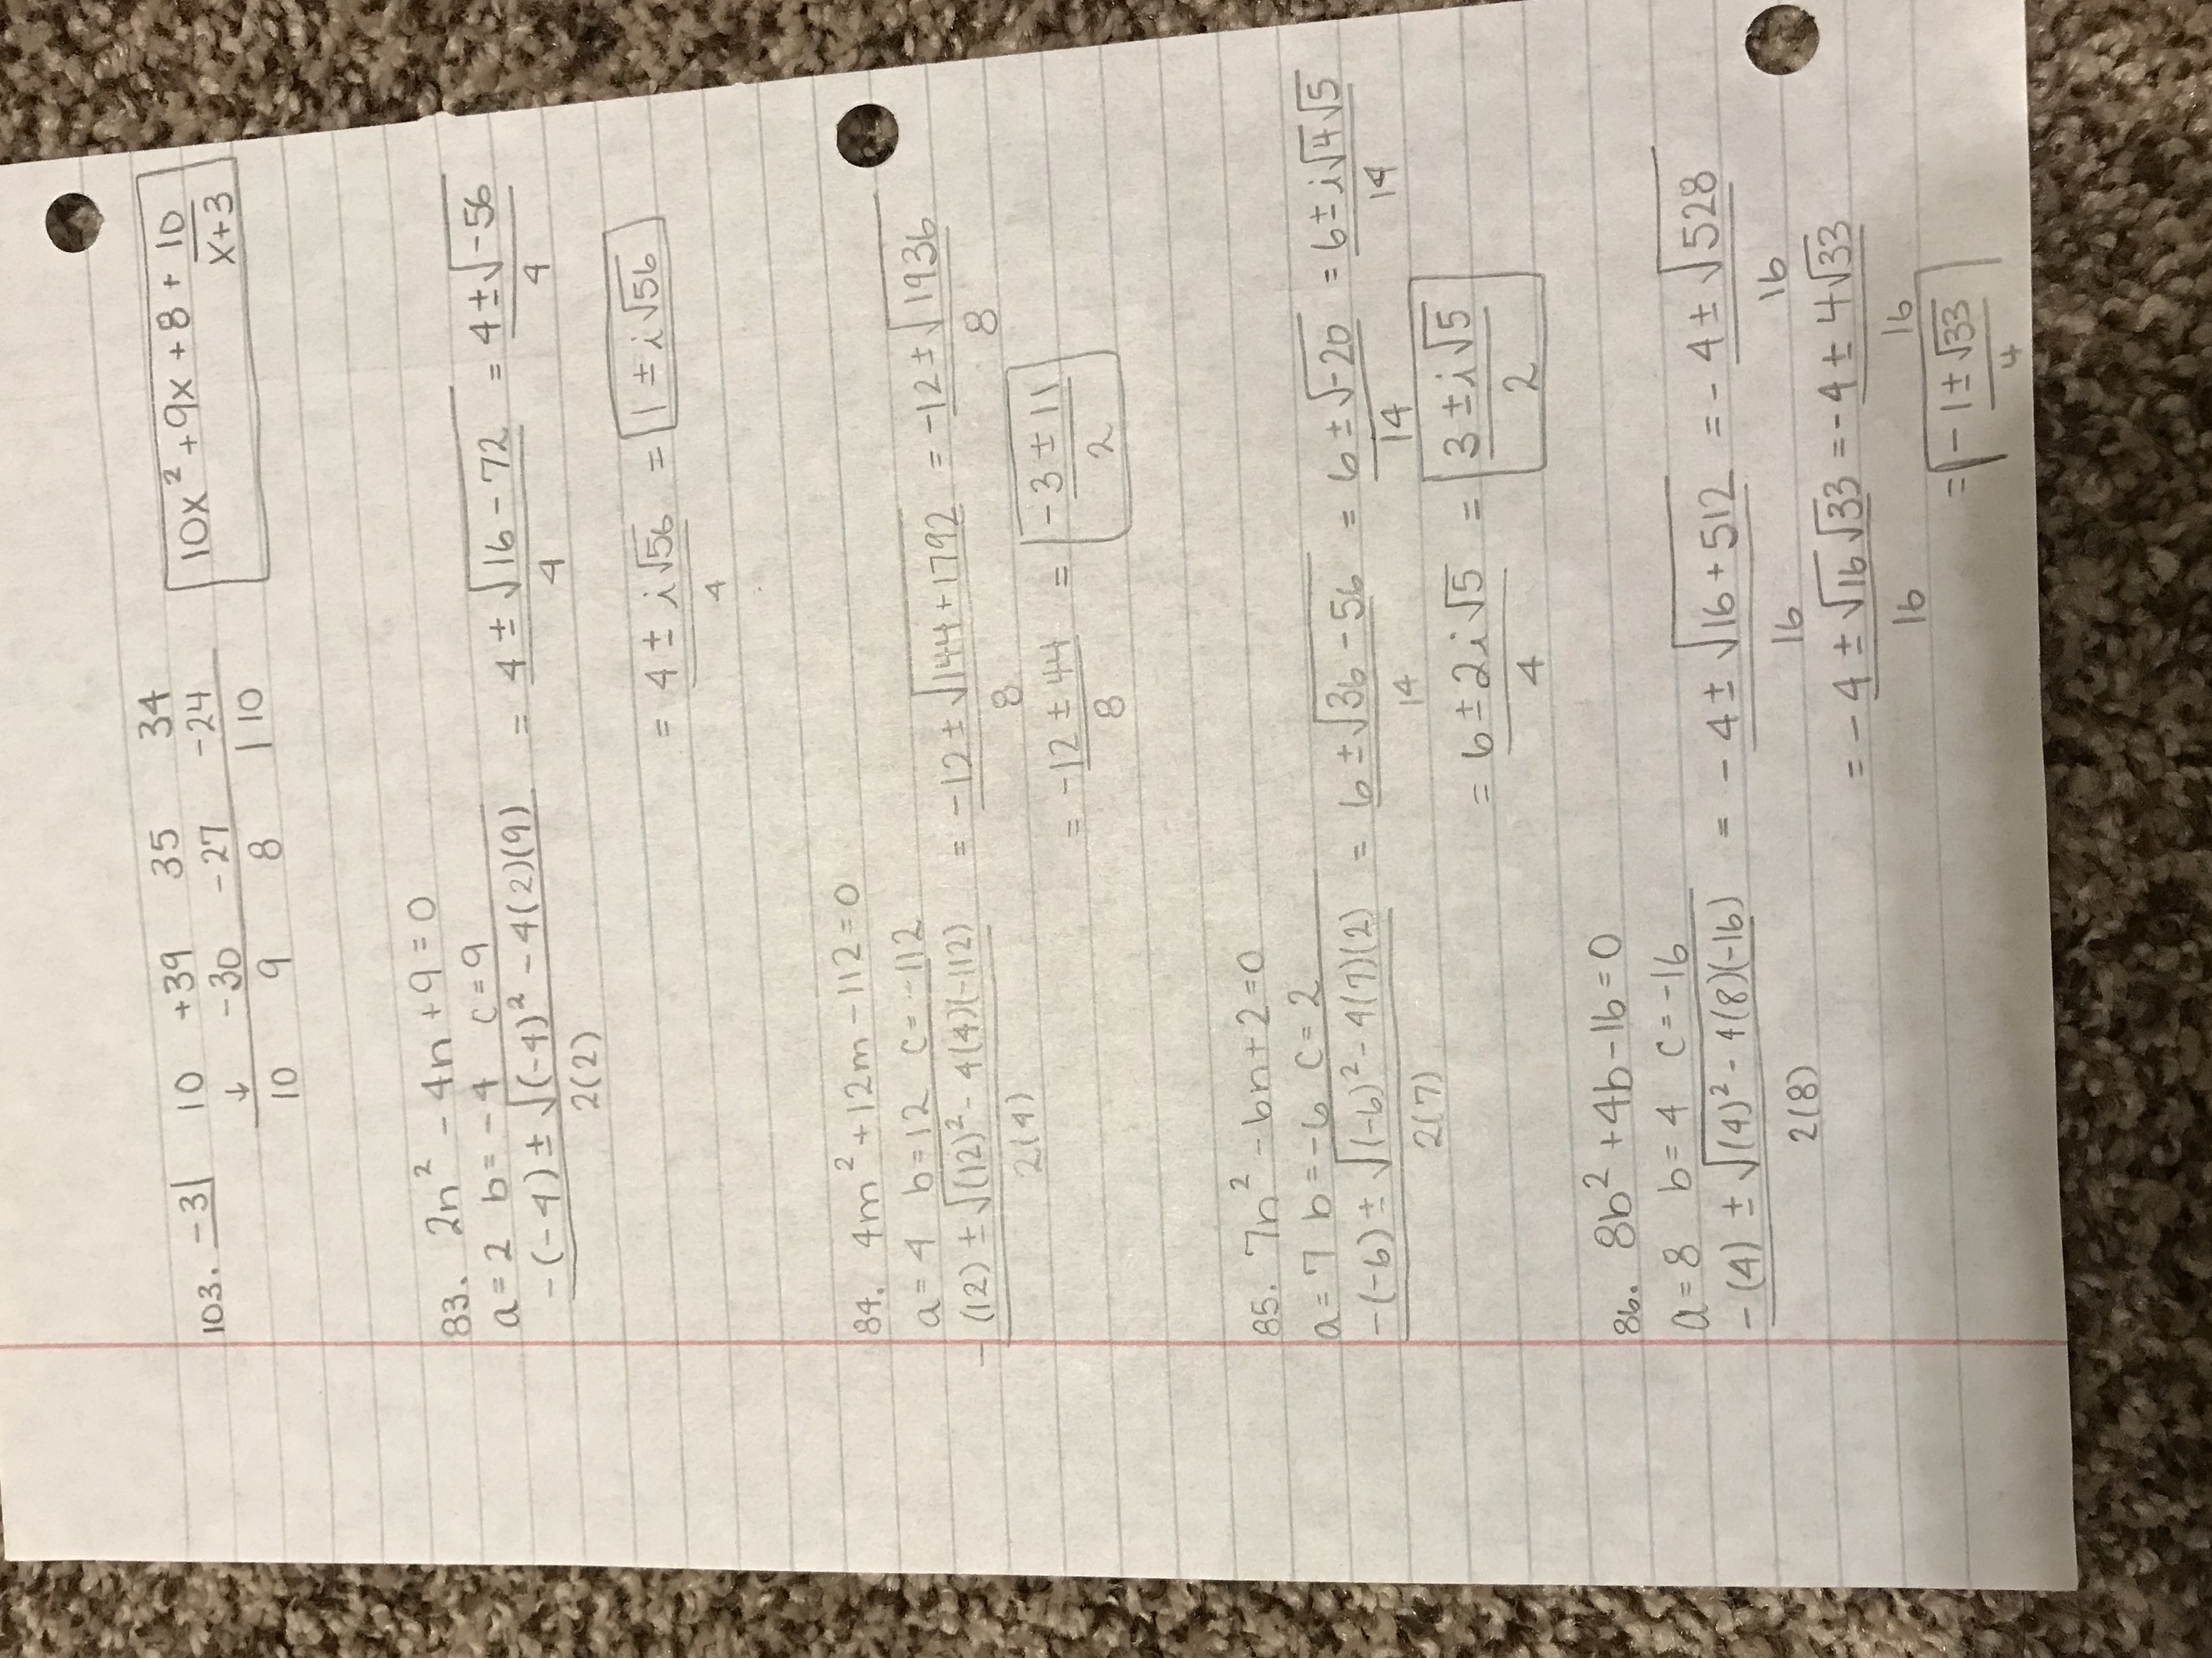 103. -3| 10 +39 35 34
↓ -30 -27 -24
10 9 8 |10
10x² + 9x + 8 + 10/(x+3)
83. 2n² - 4n + 9 = 0
a = 2 b = -4 c = 9
(-(-4) ± √((-4)² - 4(2)(9)))/2(2) = (4 ± √(16 - 72))/4 = (4 ± √-56)/4
= (4 ± i√56)/4 = 1 ± i√56
84. 4m² + 12m - 112 = 0
a = 4 b = 12 c = -112
(-(12) ± √((12)² - 4(4)(-112)))/2(4) = (-12 ± √(144 + 1792))/8 = (-12 ± √1936)/8
= (-12 ± 44)/8 = (-3 ± 11)/2
85. 7n² - 6n + 2 = 0
a = 7 b = -6 c = 2
(-(-6) ± √((-6)² - 4(7)(2)))/2(7) = (6 ± √(36 - 56))/14 = (6 ± √-20)/14 = (6 ± i√4√5)/14
= (6 ± 2i√5)/4 = (3 ± i√5)/2
86. 8b² + 4b - 16 = 0
a = 8 b = 4 c = -16
(-(4) ± √((4)² - 4(8)(-16)))/2(8) = (-4 ± √(16 + 512))/16 = (-4 ± √528)/16
= (-4 ± √16√33)/16 = (-4 ± 4√33)/16
= (-1 ± √33)/4